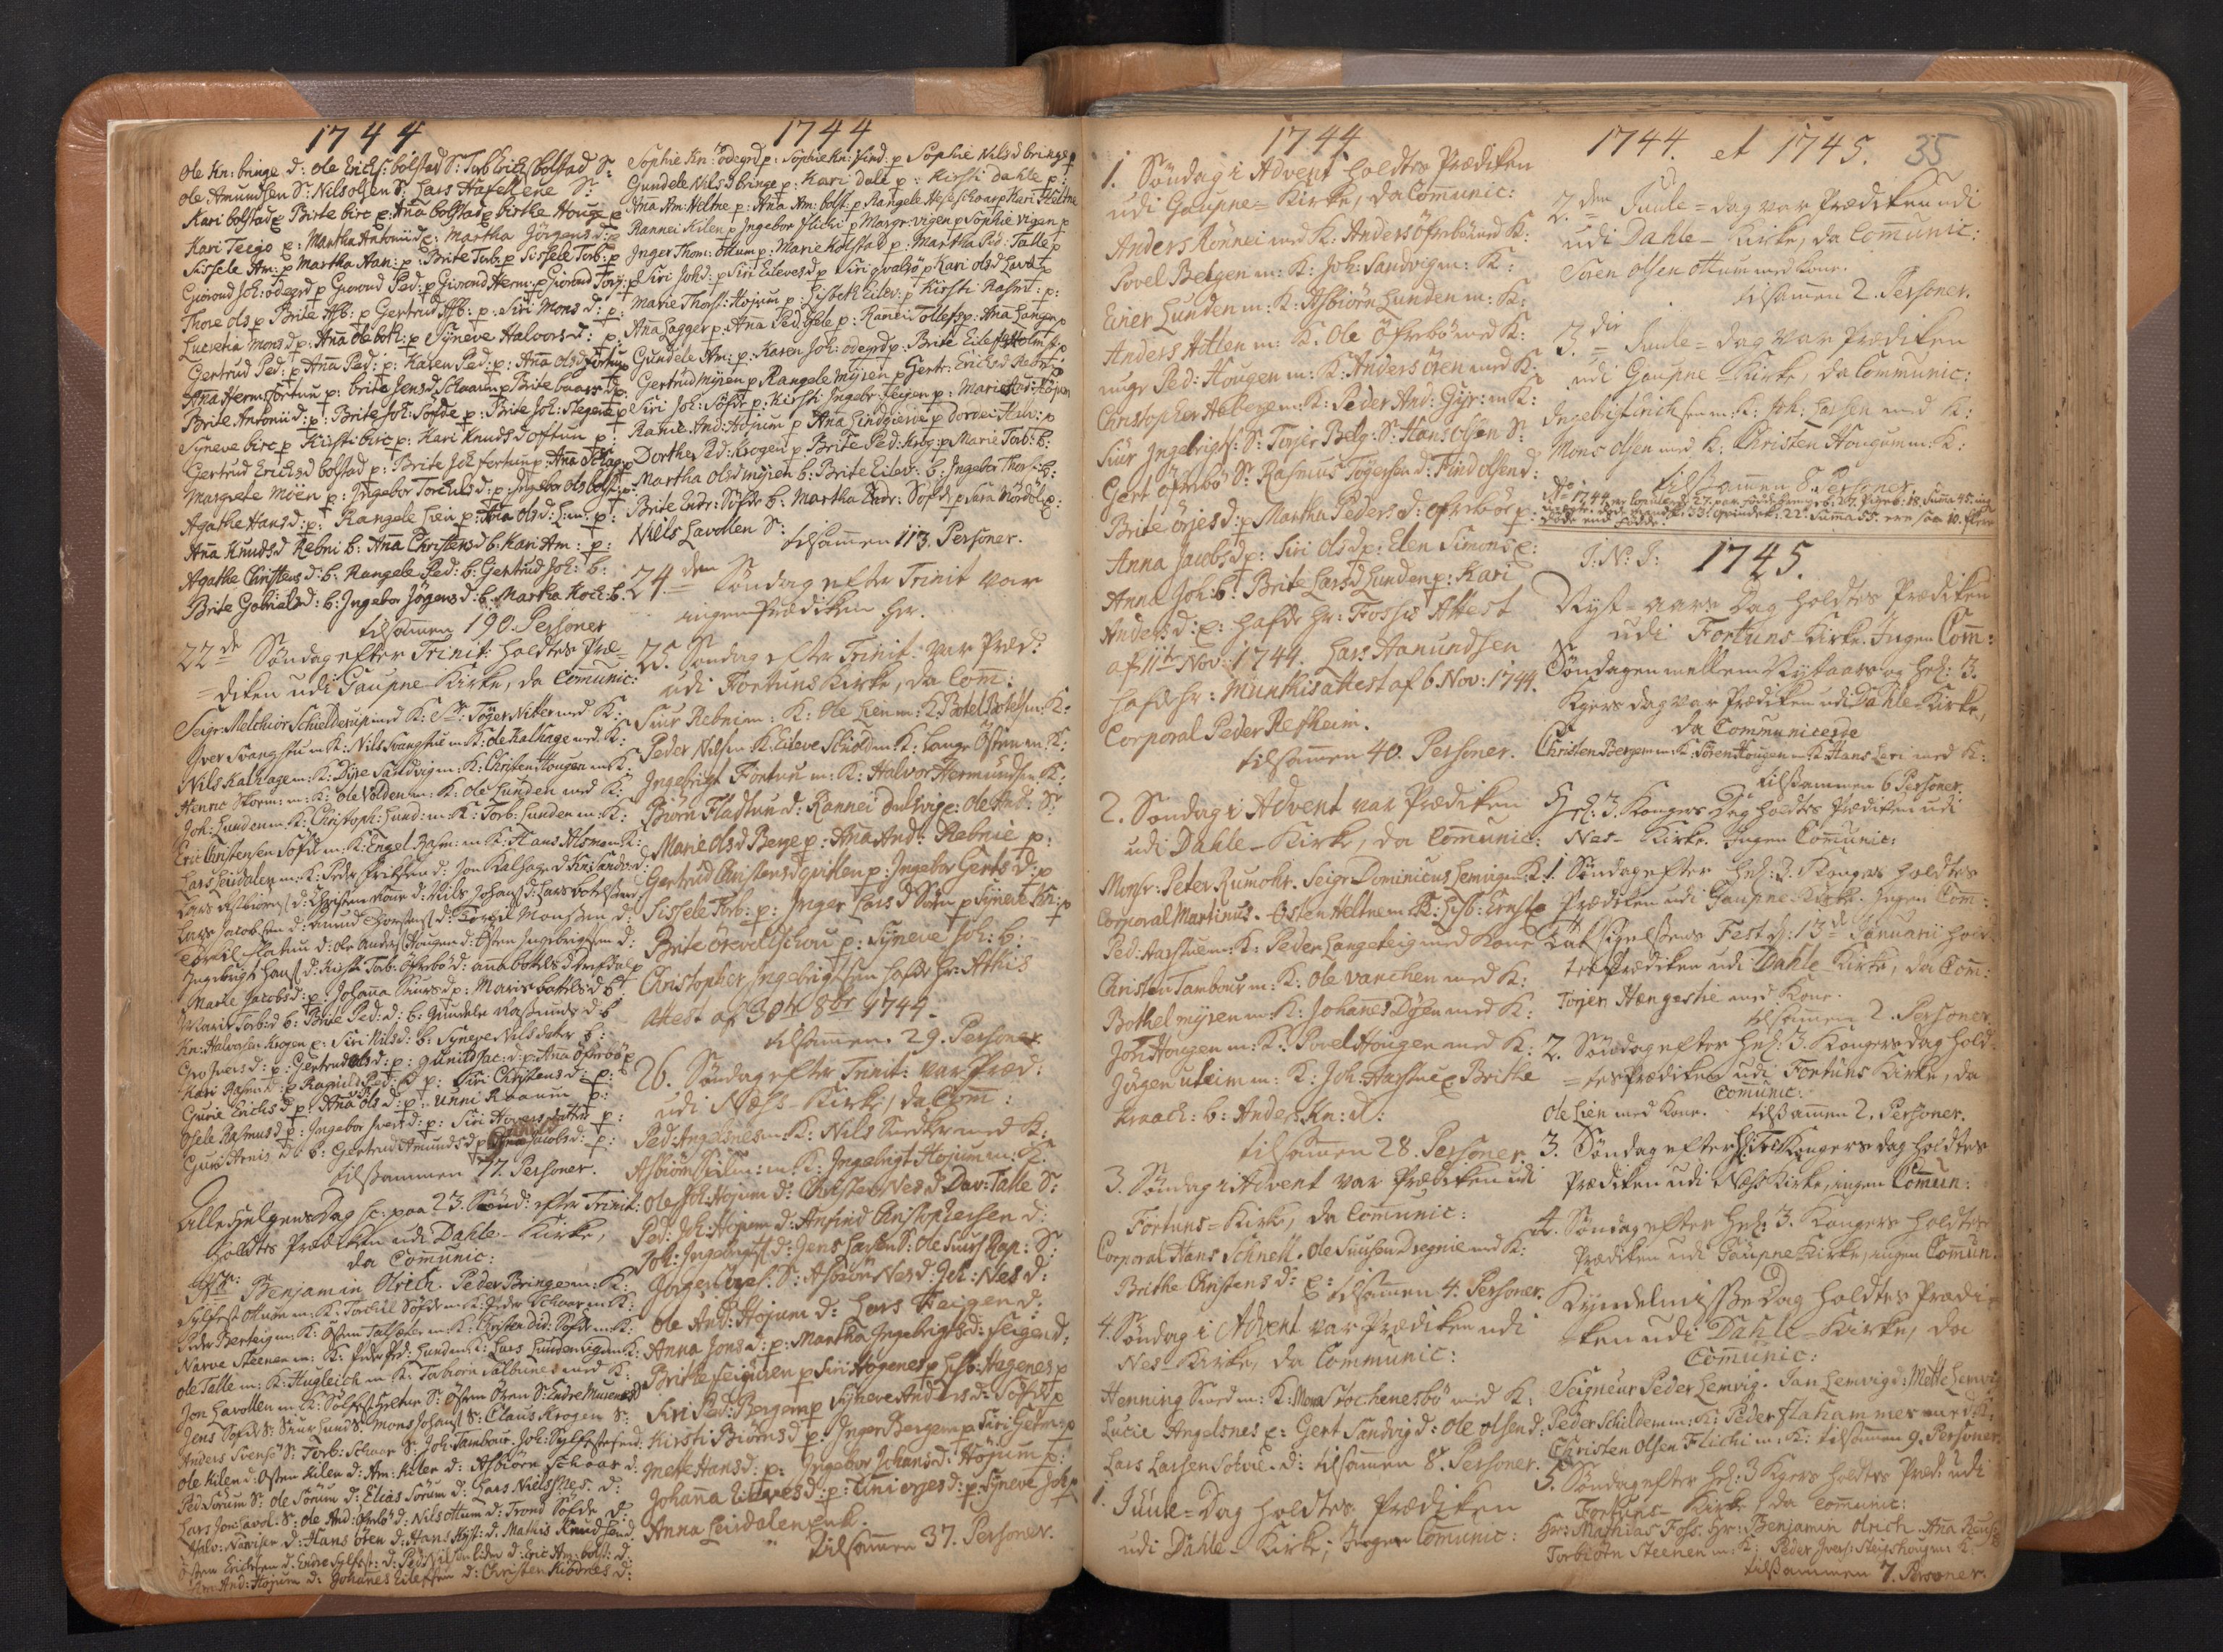 1744
Ole Kn: bringe d: Ole Erichs: bolstad S: Torb Erichs bolstad S:
Ole Amundsen S: Nils olsen S: Lars Hafellene S:
Kari bolstad p Birte birc p: Aña bolstad p birthe Houge p
Kari Teige p: Martha Antonii d p: Martha Jörgens d: p
Sissele Am: p Martha Han: p: Brite Torb: p Sissele Torb: p
Giörond Joh: ödegrd p Giorond Ped: p Giorond Herm: p Giorond Torg: p
Thore ols p Brite Asb: p Gertrud Asb: p. Siri Mons d: p:
Lucretia Mons d p: Aña oleboh: p Syneve Halvors d: p:
Gertrud Ped: p Aña Ped: p: Karen Ped: p: Aña ols d fortun p
Aña Herm: fortun p: brite Jens d Schaar p Brite baars d p
Brite Antonii d: p: Brite Joh: Söfde p: Brite Joh: Stegene p
Syneve birc p Kirsti birc p: Kari Knuds d offtun p:
Gertrud Erichs d bolstad p: Brite Joh fortun p: Aña
Margrete Möen p: Ingebor Torchils d: p: Ingebor ols bolst: p:
Agathe Hans d: p: Rangele Lien p: Aña Ols d: Lien: p:
Aña Knuds d Rebni b: Aña Christens d b: Kari Am: p:
Agathe Christens d: b: Rangele Ped: b: Gertrud Joh: b:
Brite Gabriels d: b: Ingebor Jörgens d: b Martha Koch: b:
tilsamen 190. Personer
22de Söndag efter Trinit: holdtes Præ=
=diken udi Gaupne Kirke, da Comunic:
Seigr: Melchior Schielderup med K: Sr. Töger Nitter med K:
Yver Svangstu m K: Nils Svangstu m K: ole Kalhage med K:
Nils Kalhage m: K: Dyre Sandvig m: K: Christen Hougen m K:
Henric Storm: m: K: ole Volden m: K: ole Lunden med K:
Joh: Lunden m: K: Christoph: Lund: m: K: Torb: Lunden m: K:
Eric Christensen Söfde m: K: Engel Rasm: m K: Hans Alsmo m K:
Lars Leirdalen m: K: Peder Fritzen d: Jon Kalhage d
Lars Asbiörns d: Christen Roue d: Nils Johans d: Lars
Lars Jacobsen d: Amund Thorstens d: Torgel Monsen d:
Flatun d: ole Anders Hougen d: Östen Ingebrigtsen d:
Ingebrigt Hans d: Kirsti Torb: Öfrebö d: aña bottels d
Marte Jacobs d: p: Johaña Siurs d p: Maris bottels d b:
Marit Torb: d b: Brite Ped: d: b: Gundele Rasmus d b
Kn: Halvorsen Krogen p: Siri Nils d: b: Syneve Nils dater b:
Gro Ivers d: p: Gertrud ols d: p: gunild Jac: d: p: Aña Öfrebö p
Kari Rasm: d: p Ragnild Ped: d p: Siri Christens d: p:
Gurie Erichs d p: Aña Ols d: p: Unni Kraaum p:
Osele Rasmus d p: Ingebor Ivers d: p: Siri Hovers datter p:
Guri Arnis d: b: Gertrud Amunds d p Jacobs d: p:
tilsammen 77. Personer.
Alle Helgens Dag sc: paa 23. Sönd: efter Trinit:
holdtes Prædiken udi Dahle-Kirke,
da Comunic:
Hr: Benjamin Olrich. Peder Bringe m: K:
Sylfest ottum m: K: Torchil Söfde m: K: Peder Schaar m: K:
Peder Berteig m: K: Östen Talsæter m: K: Christen Did: Söfde m: K:
Narve Steenen m: K: Peder Ped: Lunden m: K: Lars Lunden
ole Talle m: K: Hugleich m K: Torbiörn Talbune med K:
Jon Lavollen m: K: Sölfest Heltne S: Östen Ören S: Endre Muren d
Jens Söfde S: Siur Lund S: Mons Johans S: Claus Krogen S:
Anders Svensö S: Torb: Schaar S: Joh: Tambour. Joh: Sylfestsen d:
ole Kilen d: Östen Kilen d: Am: Kilen d: Asbiörn Schaar d:
Ped Sörum S: ole Sörum d: Elias Sörum d: Lars Nielss Nes. d:
Lars Jon: Lavol: S: ole And: Öfrebö d: Nils ottum d: Trond Söfde d:
Halv: Narvesen d: Hans ören d: Hans Myst: d: Mathis Knudsen d
Östen Erichsen d. Endre Sylfest: d: Peder Nilsen Liden d: Eric Am: bolst: d:
Am: And: Höjum d: Johanes Eilefsen d: Christen Kiödnes d:
1744
Sophie Kn: ödegrd p: Sophie Kn: Lind: p Sophie Nils d bringe p
Gundele Nils d bringe p: Kari dale p: Kirsti dahle p:
Aña Am: Heltne p: Aña Am: bolst: p Rangele Heseschaar p Kari Heltne
Rannei Kilen p Ingebor Flichi p Margr: vigen p Sophie vigen p
Inger Thom: ottum p: Marie Kolstad p: Martha Ped: Talle p
Siri Joh d: p Siri Eileves d p Siri qvalsö p Kari ols d Lavolt p
Marie Thorst: Höjum p: Lisbeth Eilev: p Kirsti Rasmt: p:
Aña Lagger p: Aña Ped: p: Ranei Tollefs p: Aña Langøe p
Gundele Am: p: Karen Joh: ödegrd p: Brite Eilefs Holm p
Gertrud Myren p Rangele Myren p Gertr: Erichs d Rebni p
Siri Joh: Söfde p: Kirsti Ingebr: Feigen p: Marie And: Höjen
Ranie And: Höjum p Aña Lindgierie p Dordei Am: p
Dorthe Ped: Krogen p: Brite Ped: Krog: p Marie Torb: b:
Martha ols d myren b: Brite Eilev: b: Ingebor Thors: b:
Brite Endr: Söfde b: Martha Endr: Söfde p Sara Nördöl p:
Niels Lavollen S: tilsamen 113. Personer.
24.den Söndag efter Trinit var
ingen Prædiken her.
25. Söndag efter Trinit: var Præd:
udi Fortuns Kirke, da Com:
Siur Rebni m: K: Ole Lien m: K: Botel Botels m: K:
Peder Nilsen K: Eileve Skiold m K: Lange Östen m: K:
Ingebrigt Fortun m: K: Halvor Hermundsen K:
Biörn Fladhun d: Rannei Dulsvig p: ole S:
Marie Ols d Berge p: Aña And: Rebnie p:
Gertrud Christens d qvitlen p: Ingebor Gerts d: p
Sissele Torb: p: Inger Lars d Sörn p Synete Kn: p
Brite örevelschou p: Syneve Joh: b:
Christopher Ingebrigtsen hafde Hr: Athis
Attest af 30te 8br 1744.
tilsamen. 29. Personer.
26. Söndag efter Trinit: var Præd:
udi Næhs-Kirke, da Com:
Ped: Angelsnes m: K: Nils Snedker med K:
Asbiörn m: K: Ingebrigt Höjum m: K:
Ole Joh: Höjum d: Christen Nes d Dav: Talle S:
Ped: Joh: Höjum d: Anfind Christophersen d:
Joh: Ingebrigts d: Jens Larsen S: Ole Siurs Rap: S:
Jörgen S: Asbiörn Nes d: Joh: Nes d:
Ole And: Höjum d: Lars Feigen d:
Anna Jons d: p: Martha Ingebrigts d: Feigen d:
Brithe Feigen p Siri Högenes p Lisb: Hagenes p
Siri Ped: Bergem p Syneve And: d: Söfde p
Kirsti Biörns d p: Inger Bergem p Siri p
Mette Hans d: p: Ingebor Johans d: Höjum p:
Johaña Eileves d: p: Uni orjes d: p: Syneve Joh p
Anna Leirdalen enk.
tilsamen 37. Personer.
1744
1. Söndag i Advent holdtes Prædiken
udi Gaupne=Kirke, da Comunic:
Anders Rönnei med K: Anders Öfrebö med K:
Povel Bergen m: K: Joh: Sandvig m: K:
Einer Lunden m: K: Asbiörn Lunden m: K:
Anders Hillen m: K: Ole Öfrebö med K:
unge Ped: Hougen m: K: Anders ören med K:
Christopher Heberg m: K: Peder And: Gijr: m K:
Siur Ingebrigts: S: Torjer Belg: S: Hans olsen S:
Gert öfrebö S: Rasmus Törgersen d: Find olsen d:
Brite örjes d: p Martha Peders d: ofrebö p:
Anna Jacobs d p: Siri ols d p: Elen Simons p:
Anna Joh: b: Brite Lars d Lunden p: Kari
Anders d: p: hafde Hr: Fosses Attest
af 11te Nov: 1744. Lars Hanundsen
hafde Hr: Munthis attest af 6. Nov: 1744.
Corporal Peder Refheim.
tilsamen 40. Personer.
2. Söndag i Advent var Prædiken
udi Dahle-Kirke, da Comunic:
Monsr: Peter Rumohr. Seigr Dominicus Lemvig m K:
Corporal Martinus. Östen Heltne m: K: Lisb: Ernst p
Ped: Aarstue m: K: Peder Langeteig med Kone
Christen Tambour m: K: Ole vanchen med K:
Bothel myren m: K: Johanes Dösen med K:
Joh: Hougen m: K: Povel Hougen med K:
Jörgen uleim m: K: Joh: Aarstue p Brithe
Kraach: b: Anders Kn: d:
tilsamen 28. Personer.
3. Söndag i Advent var Prædiken udi
Fortuns=Kirke, da Comunic:
Corporal Hans Schnell. Ole Siursen Dregnie med K:
Brithe Christens d: p: tilsamen 4. Personer.
4. Söndag i Advent var Prædiken udi
Nes-Kirke, da Communic:
Henning Sned m: K: Mons Stochenesbö med K:
Lucie Angelsnes p: Gert Sandvig d: Ole olsen d:
Lars Larsen d: tilsamen 8. Personer.
1. Juule=Dag holdtes Prædiken
udi Dahle-Kirke; Ingen Comunic:
1744. et 1745. 35
2.den Juule=dag var Prædiken udi
udi Dahle-Kirke, da Comunic:
Sören olsen ottum med Kone.
tilsamen 2. Personer.
3.die Juule=dag var Prædiken
udi Gaupne-Kirke, da Communic:
Ingebrigt Erichsen m: K: Joh: Larsen med K:
Mons olsen med K: Christen Hougum m: K:
tilsamen 8. Personer.
Ao 1744 er Copulered: 27. par. föds 27. 18. Suma 45.
döde mandk: 33. qvindek: 22. Suma 55. ere saa 10. flere
döde end födde.
I: N: J: 1745.
Nyt=aars Dag holdtes Prædiken
udi Fortuns Kirke. Ingen Com:
Söndagen mellem Nytaars og hel: 3.
Kgers dag var Prædiken udi Dahle-Kirke,
da Communicerde
Christen Bergem m: K: Sören Hougen m: K: Hans Leri med K:
tilsammen 6 Personer.
Hel: 3. Kongers Dag holdtes Prædiken udi
Nes-Kirke. Ingen Comunic:
1. Söndag efter Hel: 3. Kongers holdtes
Prædiken udi Gaupne-Kirke. Ingen Com:
Taksigelsens Fest d: 13de Januarii hold=
tes Prædiken udi Dahle-Kirke, da Com:
Torjer Hængestie med Kone.
tilsamen 2. Personer
2. Söndag efter Hel: 3. Kongers dag hold=
=tes Prædiken udi Fortuns Kirke, da
Comunic:
Ole Lien med Kone. tilsamen 2. Personer.
3. Söndag efter H: Tre Kongers dag holdtes
Prædiken udi Næss Kirke, ingen Comun:
4. Söndag efter Hel: 3. Kongers holdtes
Prædiken udi Gaupne Kirke, ingen Comun.
Kyndelmisse Dag holdtes Prædi=
=ken udi Dahle=Kirke, da
Comunic:
Seigneur Peder Lemvig. Jan Lemvig d: Mette Lemvig
Peder Schildem m: K: Peder flahammer med K:
Christen Olsen Flichi m: K: tilsamen 9. Personer.
5. Söndag efter Hel: 3 Kgers holdtes Præd: udi
Fortuns-Kirke, da Comunic:
Hr: Mathias Foss. Hr: Benjamin Olrich. Aña
Torbiörn Steenen m: K: Peder Ivers: Steigshougen K:
tilsammen 7. Personer.